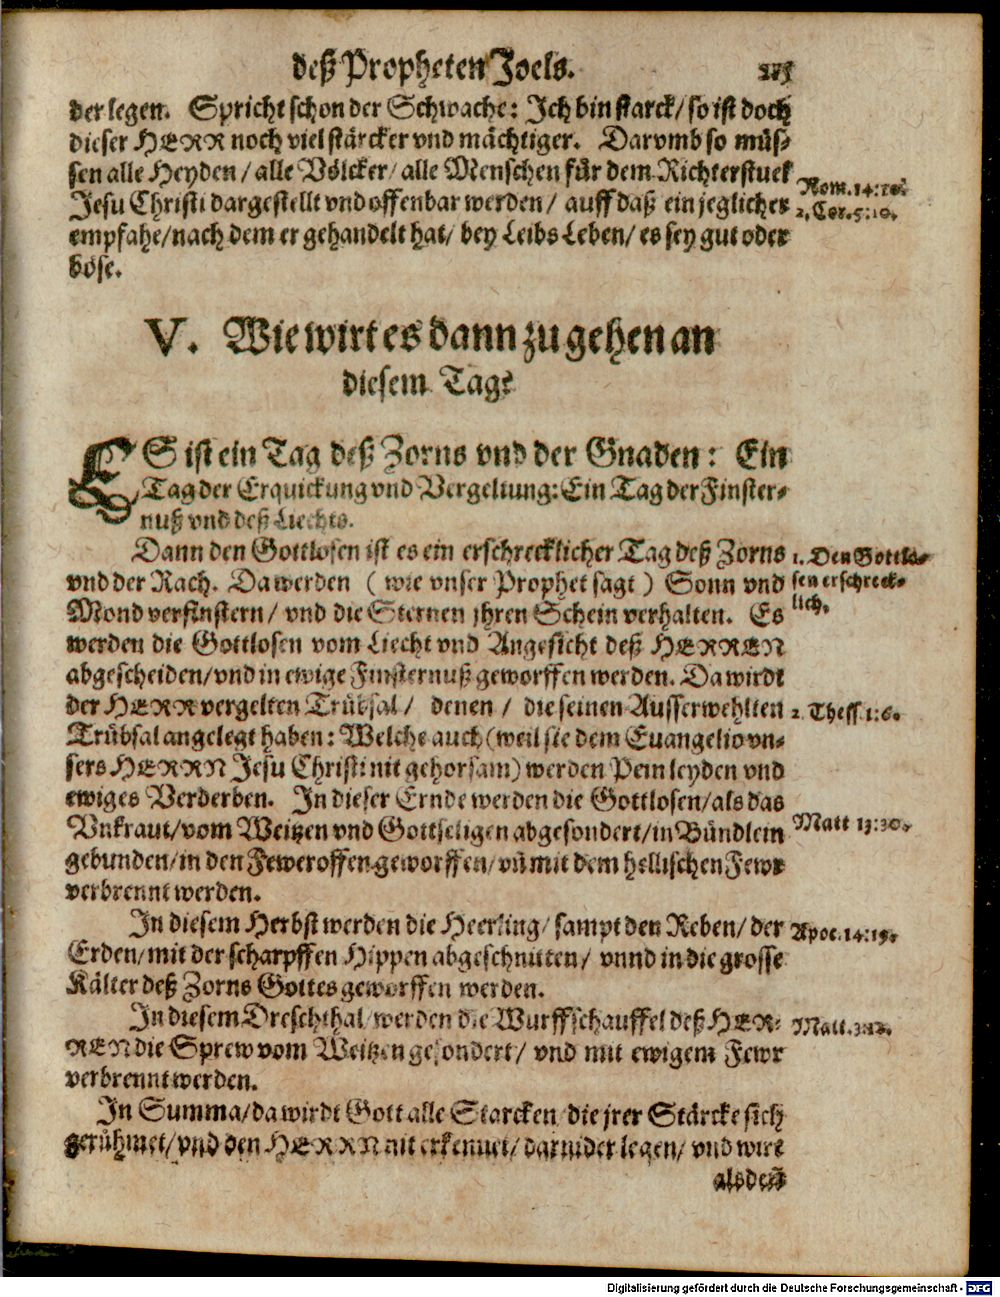 deß Propheten Joels. 275
der legen. Spricht schon der Schwache: Ich bin starck/ so ist doch
dieser HERR noch viel stärcker vnd mächtiger. Darvmb so müs-
sen alle Heyden/ alle Völcker/ alle Menschen für dem Richterstuel
Rom. 14:10.
Jesu Christi dargestellt vnd offenbar werden/ auff daß ein jeglicher
2. Cor. 5:10.
empfahe/ nach dem er gehandelt hat/ bey Leibs Leben/ es sey gut oder
böse.
V. Wie wirt es dann zu gehen an
diesem Tag?
ES ist ein Tag deß Zorns vnd der Gnaden: Ein
Tag der Erquickung vnd Vergeltung: Ein Tag der Finster-
nuß vnd deß Liechts.
Dann den Gottlosen ist es ein erschrecklicher Tag deß Zorns
1. Den Gottlo-
vnd der Rach. Da werden (wie vnser Prophet sagt) Sonn vnd
sen erschreck-
Mond verfinstern/ vnd die Sternen jhren Schein verhalten. Es
lich.
werden die Gottlosen vom Liecht vnd Angesicht deß HERREN
abgescheiden/ vnd in ewige Finsternuß geworffen werden. Da wirdt
der HERR vergelten Trübsal/ denen/ die seinen Ausserwehlten
2. Thess. 1:6.
Trübsal angelegt haben: Welche auch (weil sie dem Euangelio vn-
sers HERRN Jesu Christi nit gehorsam) werden Pein leyden vnd
ewiges Verderben. In dieser Ernde werden die Gottlosen/ als das
Vnkraut/ vom Weitzen vnd Gottseligen abgesondert/ in Bündlein
Matt 13:30.
gebunden/ in den Feweroffen geworffen/ vñ mit dem hellischen Fewr
verbrennt werden.
In diesem Herbst werden die Heerling/ sampt den Reben/ der
Apoc. 14:19.
Erden/ mit der scharpffen Hippen abgeschnitten/ vnnd in die grosse
Kälter deß Zorns Gottes geworffen werden.
In diesem Dreschthal/ werden die Wurffschauffel deß HER-
Matt. 3:12.
REN die Sprew vom Weitzen gesondert/ vnd mit ewigem Fewr
verbrennt werden.
In Summa/ da wirdt Gott alle Starcken/ die jrer Stärcke sich
gerühmet/ vnd den HERRN nit erkennet/ darnider legen/ vnd wirt
alsdeñ
Digitalisierung gefördert durch die Deutsche Forschungsgemeinschaft - DFG